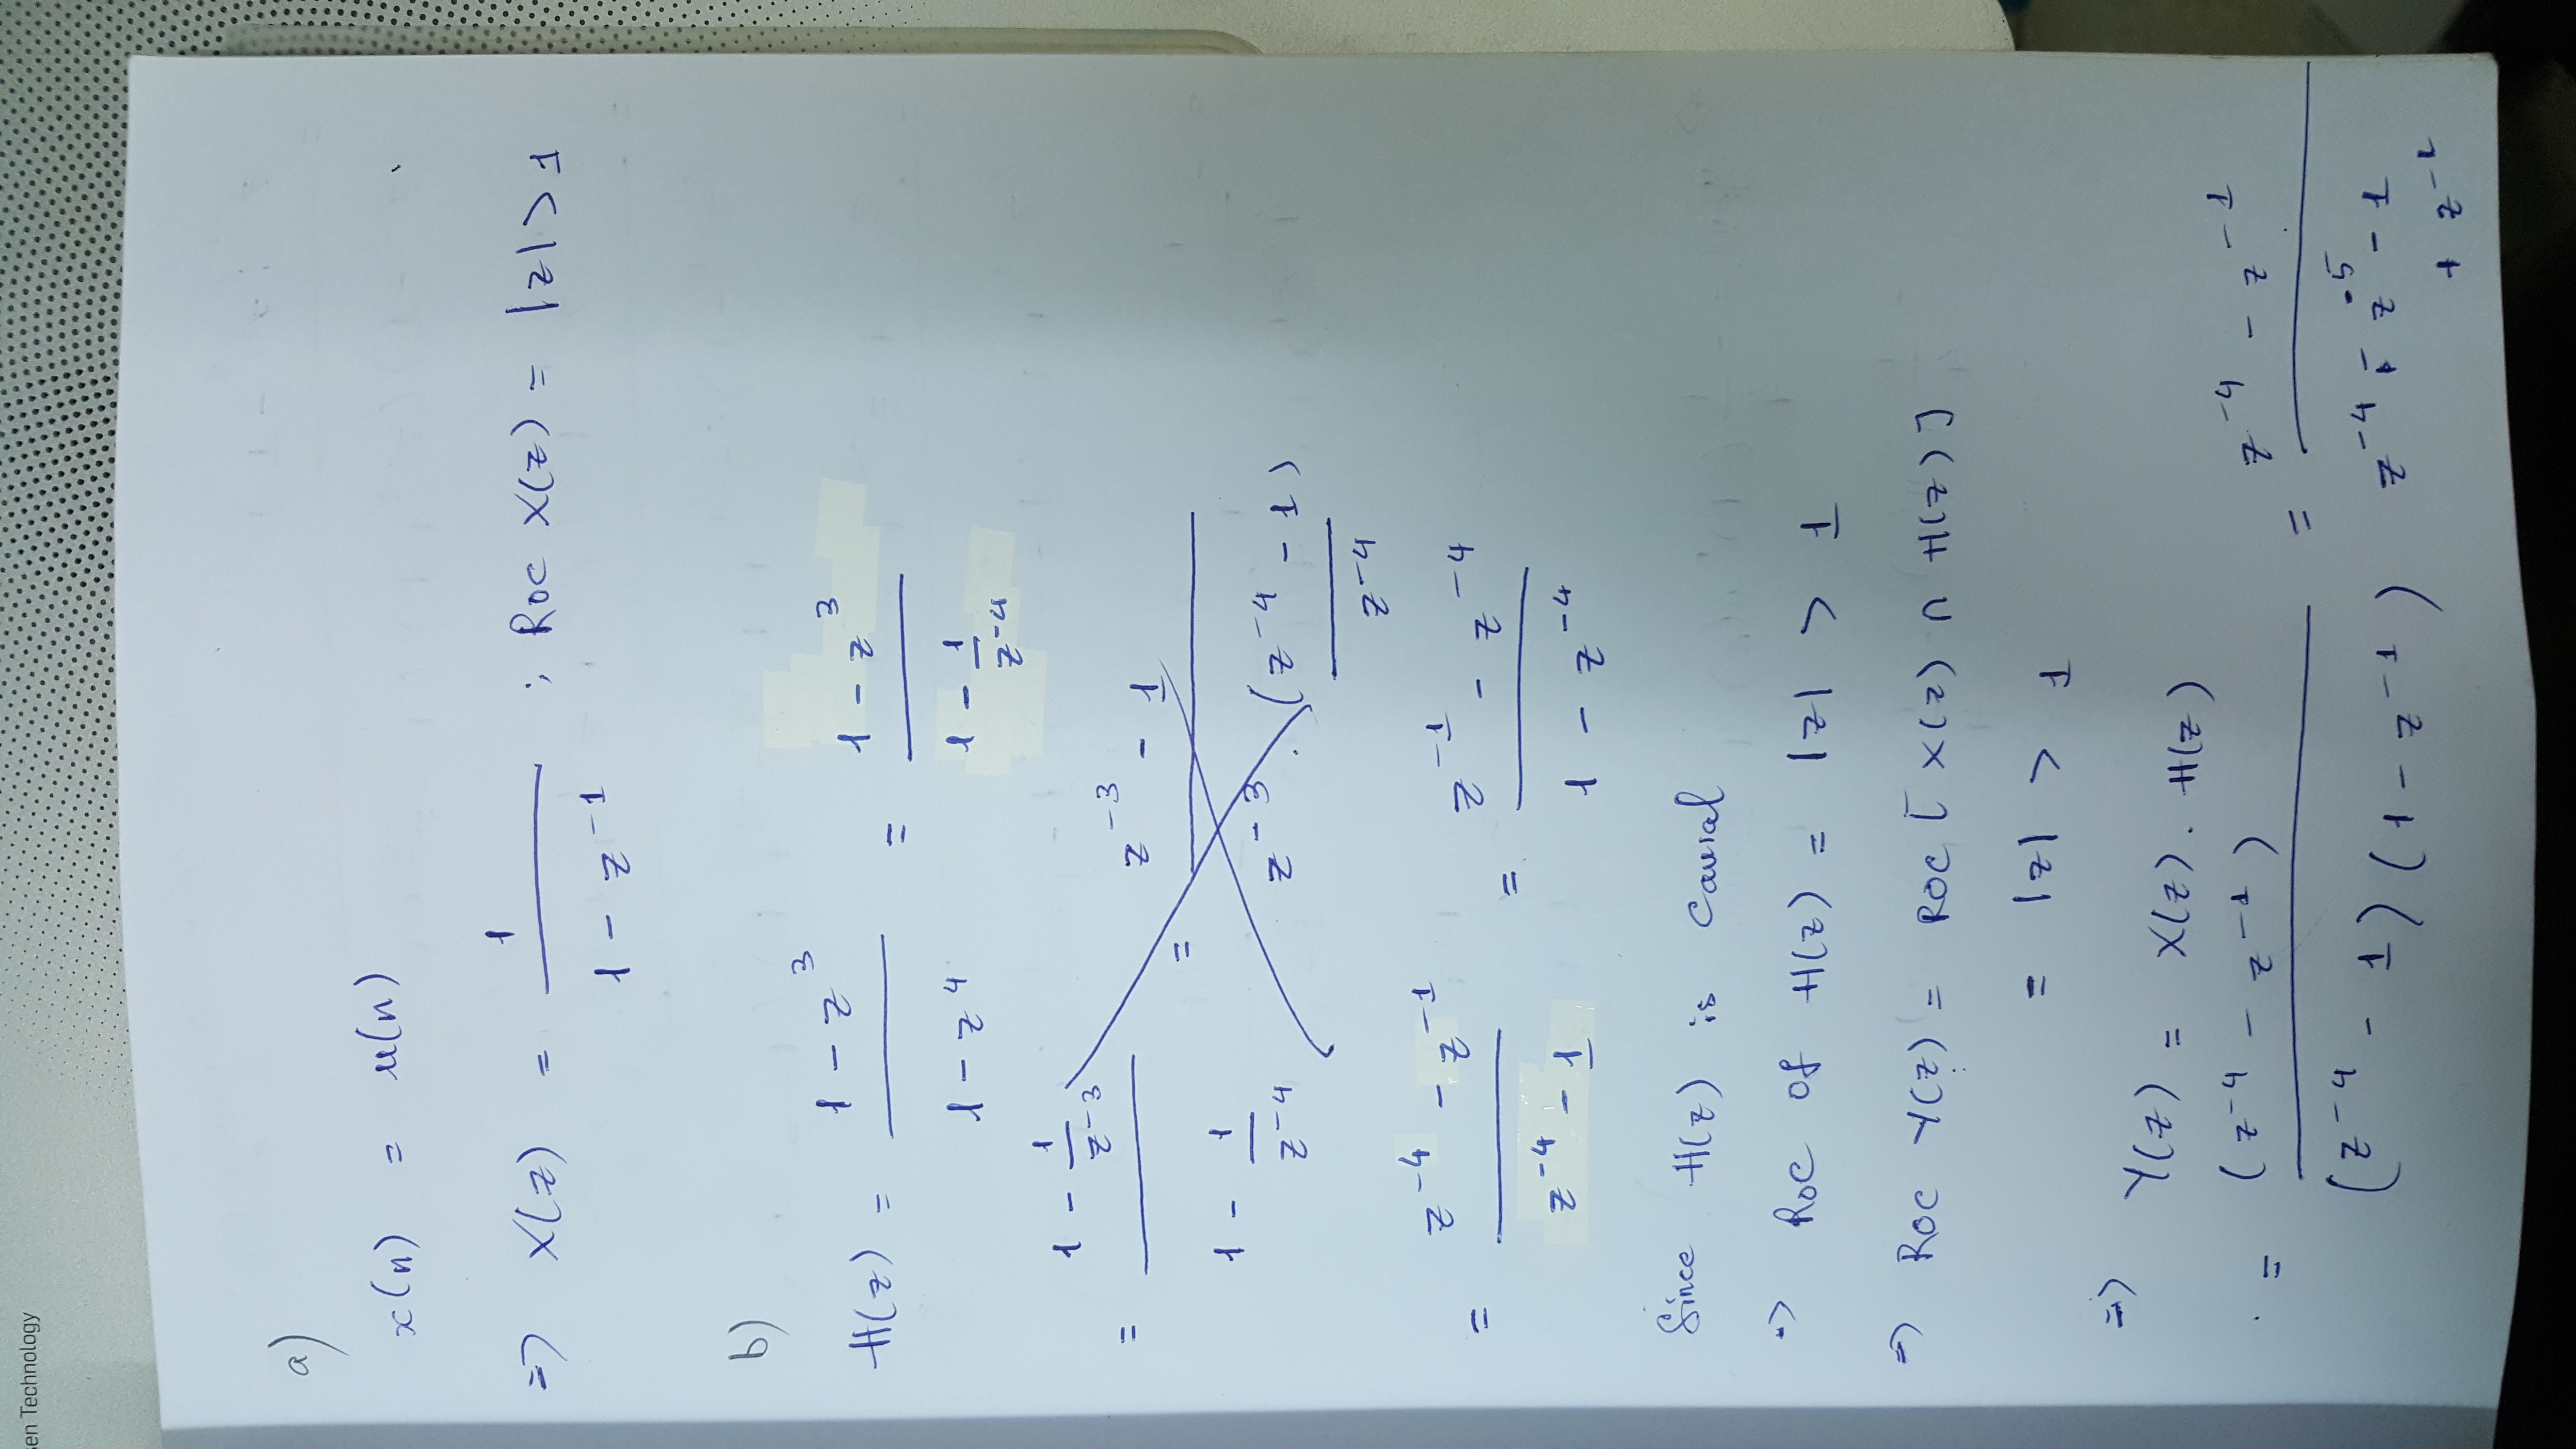 a)
x(n) = u(n)
=> X(z) = 1 / (1 - z^-1) ; ROC X(z) = |z| > 1
b)
H(z) = (1 - z^3) / (1 - z^4) = (1 - z^3) / (1 - 1/z^-4)
= (1 - 1/z^-3) / (1 - 1/z^-4) = (z^-3 - 1) / (z^-3 . (z^-4 - 1) / z^-4)
= (z^-4 - z^-1) / (z^-4 - 1) = (z^-1 - z^-4) / (1 - z^-4)
Since H(z) is causal
=> ROC of H(z) = |z| > 1
=> ROC Y(z) = ROC [X(z) ∩ H(z)]
= |z| > 1
=> Y(z) = X(z) . H(z)
= (z^-4 - z^-1) / ((z^-4 - 1)(1 - z^-1)) = (z^-4 - z^-1) / (z^-4 - z^-5 - 1
+ z^-1
sen Technology